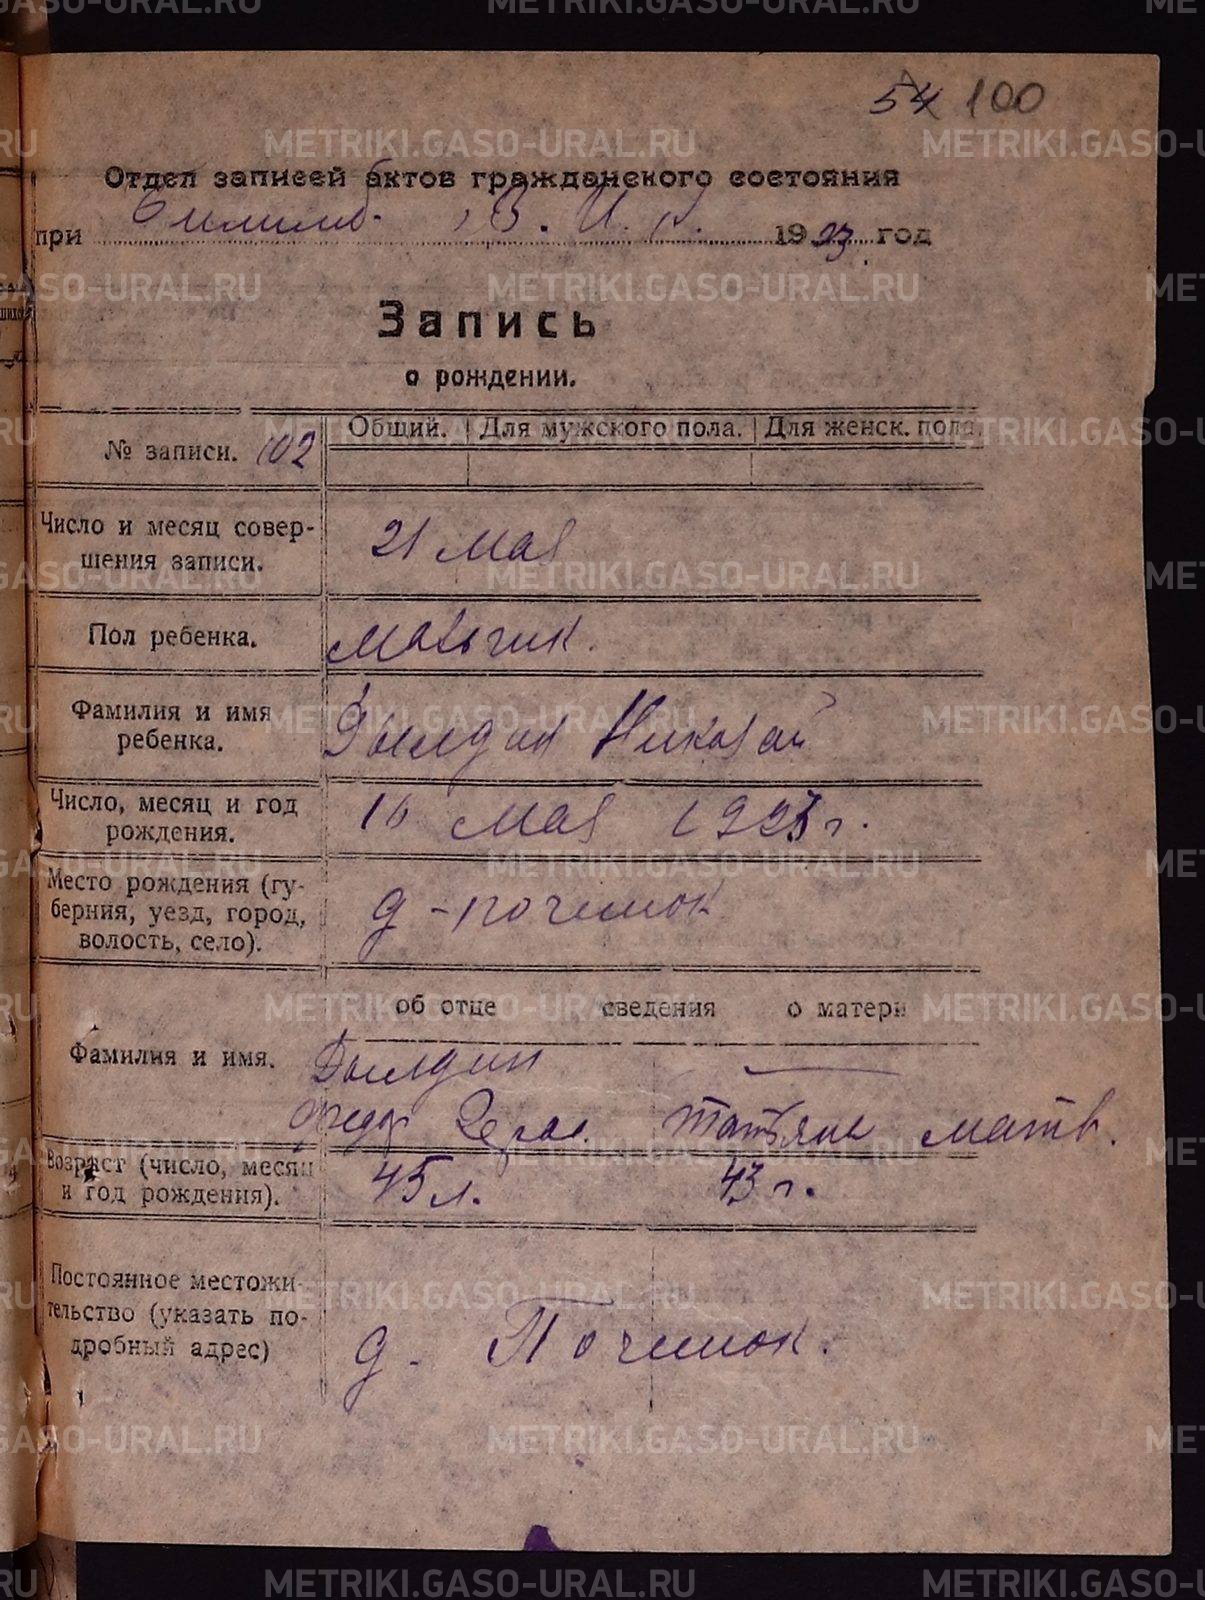 54 100
Отдел записей актов гражданского состояния
при В. И. К. 1923 год
Запись
о рождении.
№ записи. 102
Общий. Для мужского пола. Для женск. пола.
Число и месяц совер-
шения записи.
21 мая
Пол ребенка.
мальчик.
Фамилия и имя
ребенка.
Дылдин Николай
Число, месяц и год
рождения.
16 мая 1923 г.
Место рождения (гу-
берния, уезд, город,
волость, село).
д - починок
об отце сведения о матери
Фамилия и имя.
Дылдин —
Федор Татьяна Матв.
Возраст (число, месяц
и год рождения).
45 л. 43 г.
Постоянное местожи-
тельство (указать по-
дробный адрес)
д. Починок.
METRIKI.GASO-URAL.RU